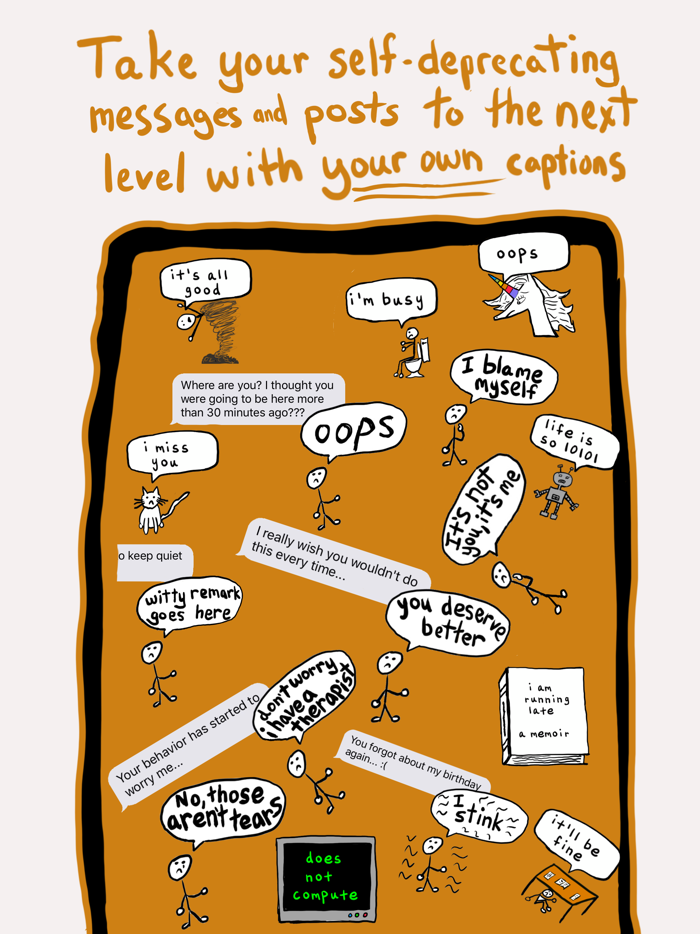 Take your self-deprecating
messages and posts to the next
level with your own captions
oops
it's all
good
i'm busy
I blame
myself
Where are you? I thought you
were going to be here more
than 30 minutes ago???
oops
life is
so 10101
i miss
you
It's not
you, it's me
I really wish you wouldn't do
this every time...
o keep quiet
witty remark
goes here
you deserve
better
don't worry
i have a
therapist
i am
running
late
a memoir
Your behavior has started to
worry me...
You forgot about my birthday
again... :(
No, those
aren't tears
I
stink
it'll be
fine
does
not
compute